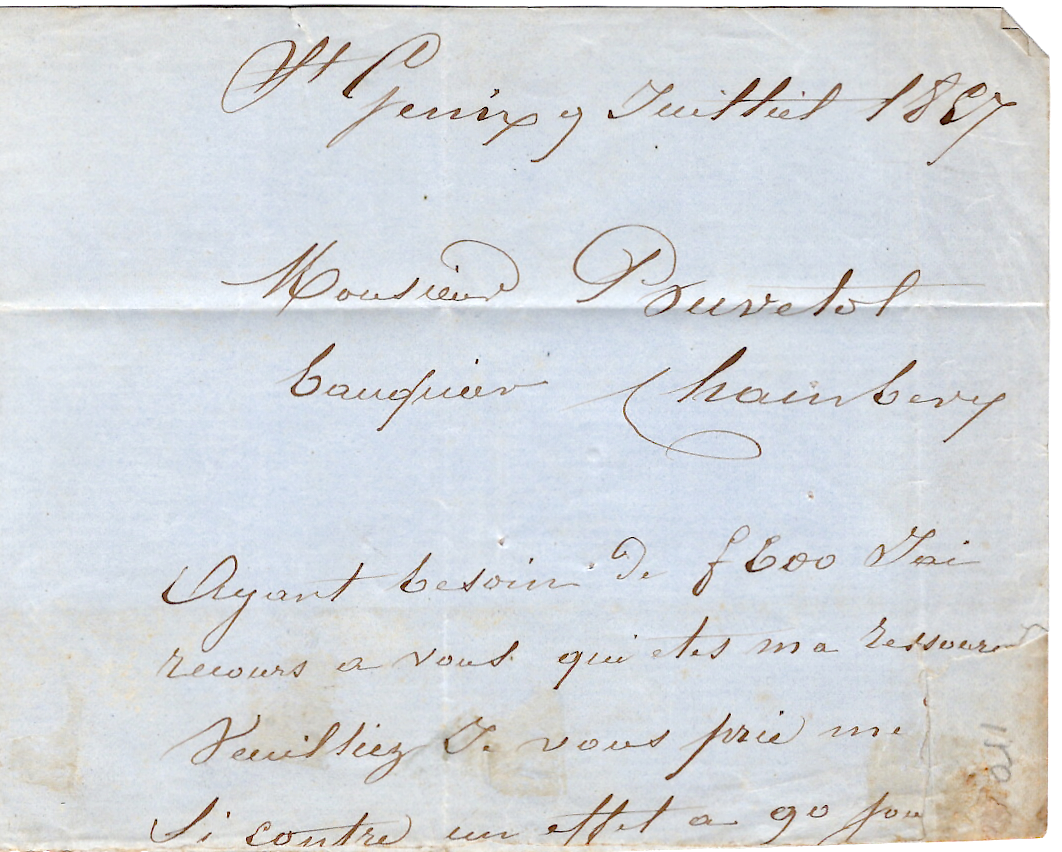 St Genix 9 Juilliet 1867
Monsieur Pruvetol
banquier Chambery
Ayant besoin de f 600 Jai
recours a vous qui etes ma ressource
Veuilliez Je vous prie me
Si contre un effet a 90 jou